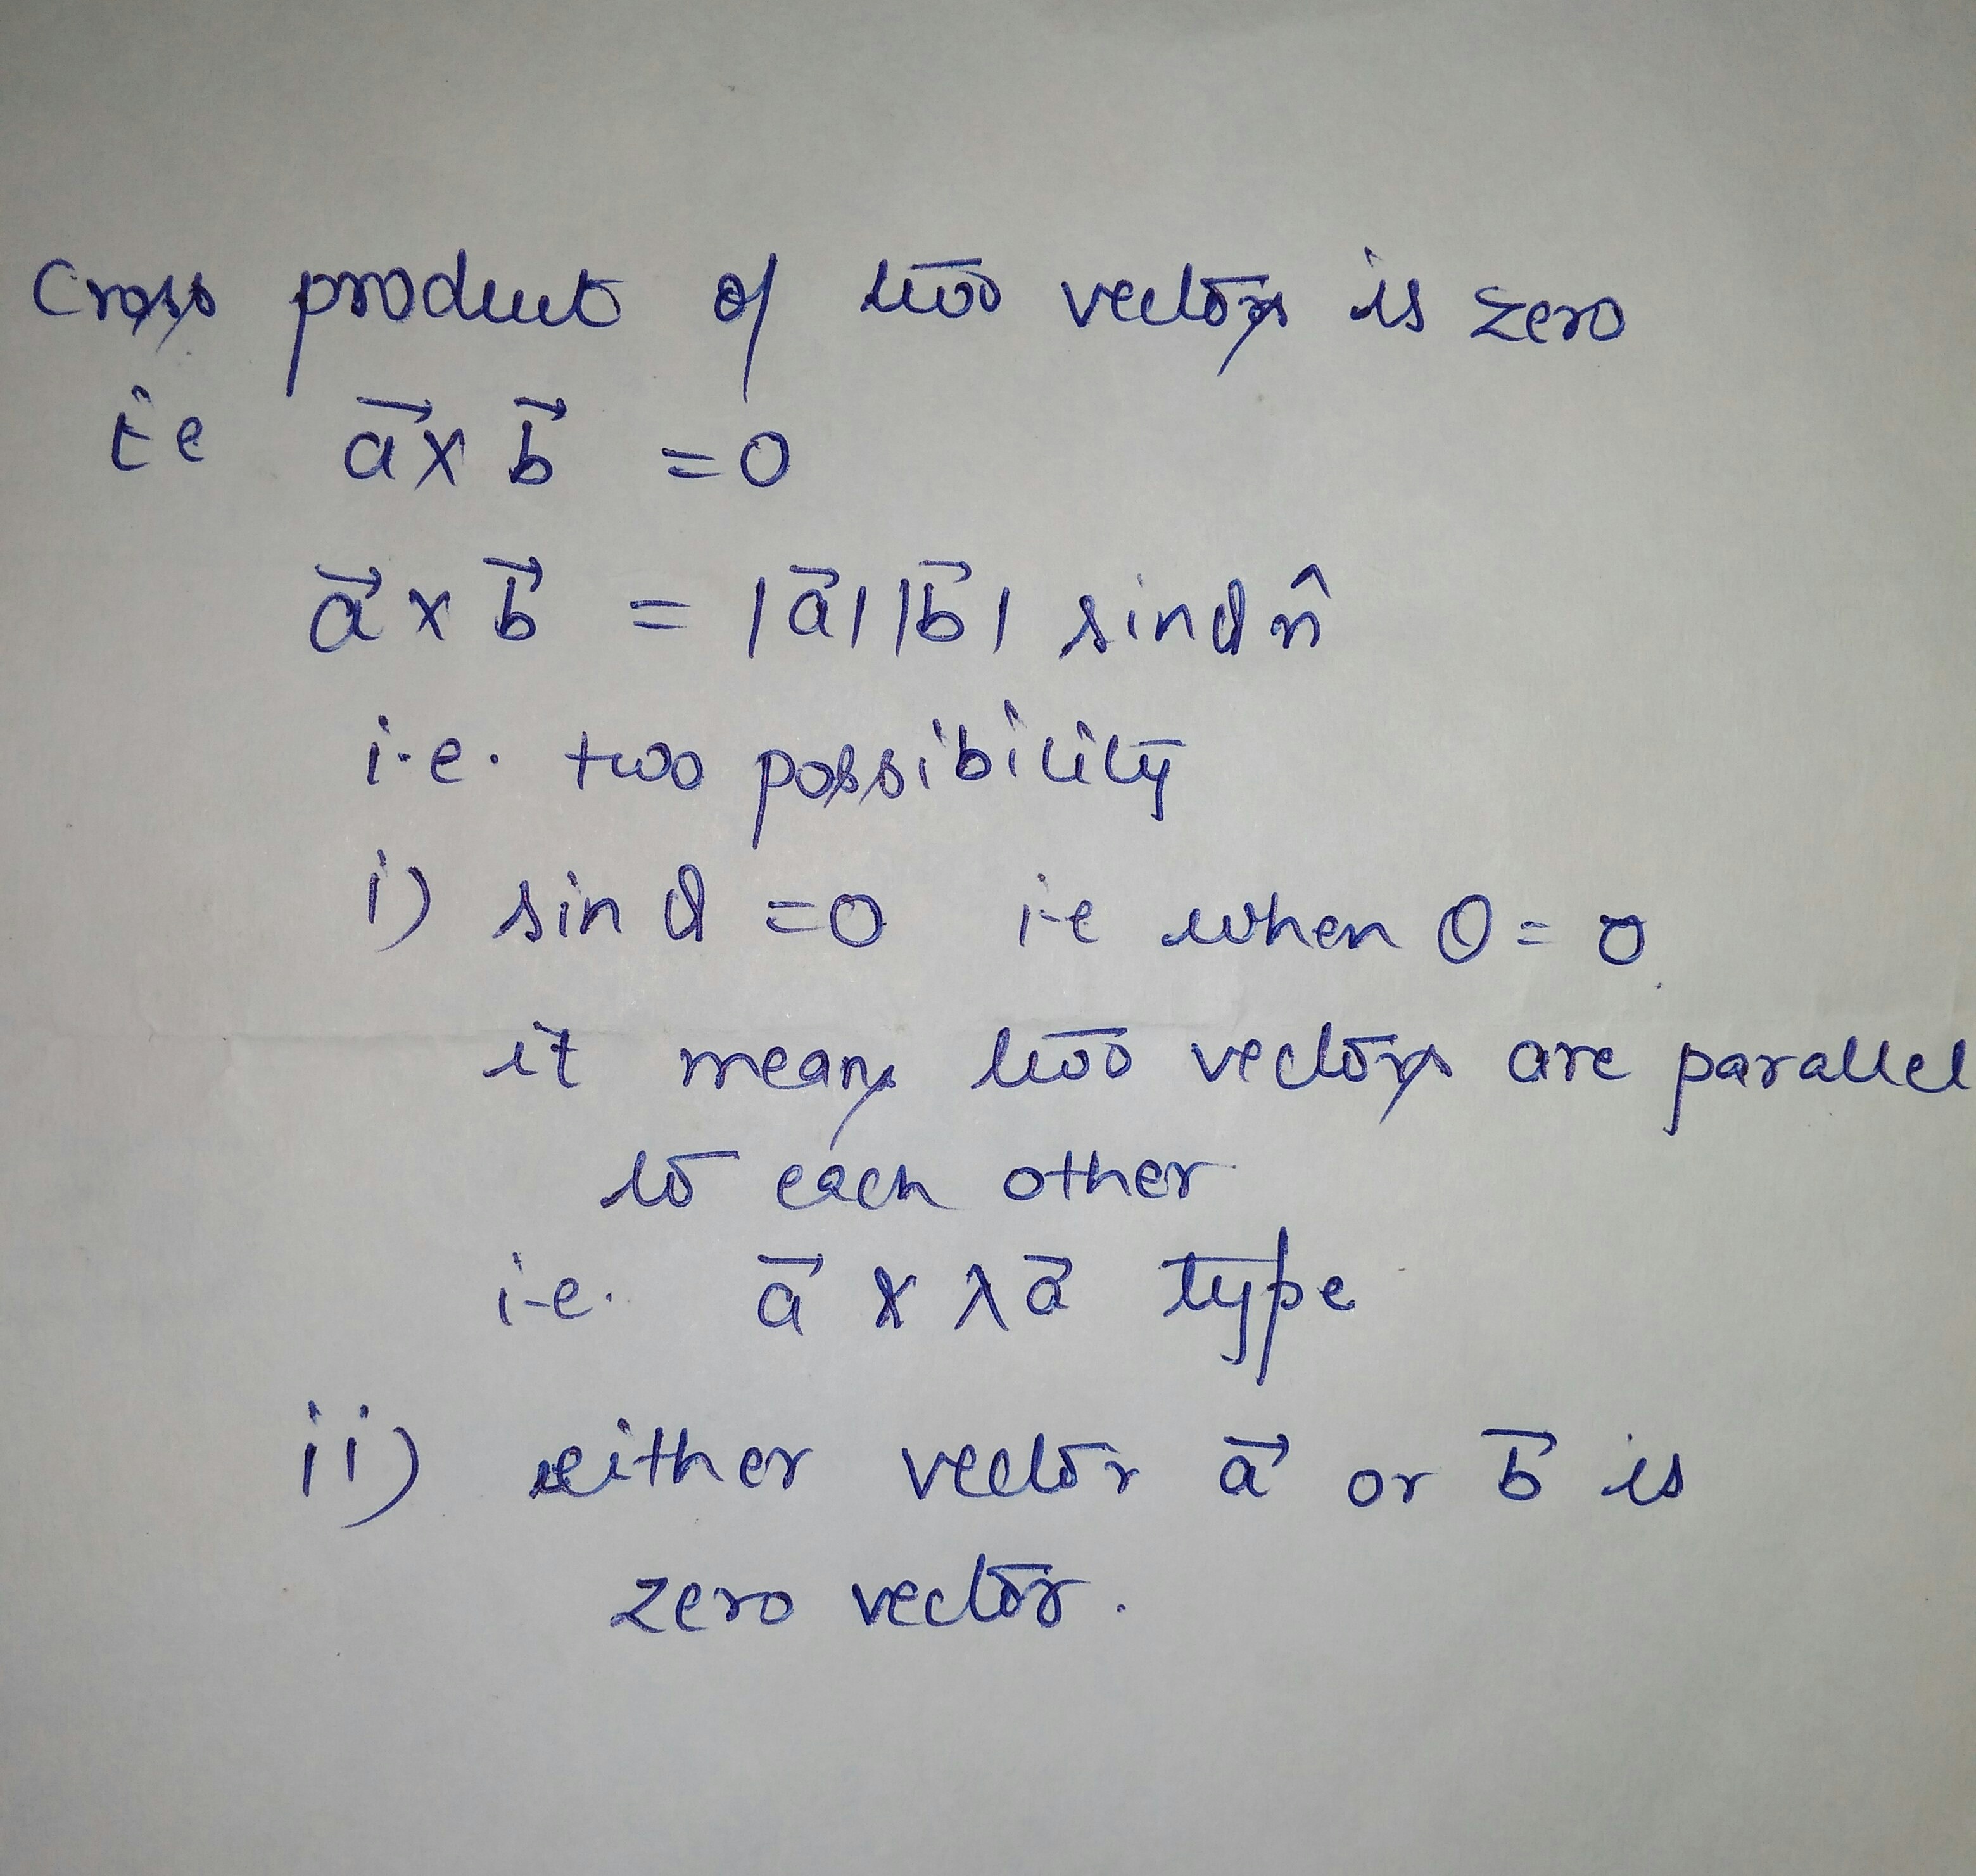 Cross product of two vectors is zero
i.e a⃗ x b⃗ = 0
a⃗ x b⃗ = |a⃗||b⃗| sinθ n̂
i.e. two possibility
i) sin θ = 0 i.e when θ = 0.
it means two vectors are parallel
to each other
i.e. a⃗ x λa⃗ type
ii) either vector a⃗ or b⃗ is
zero vector.